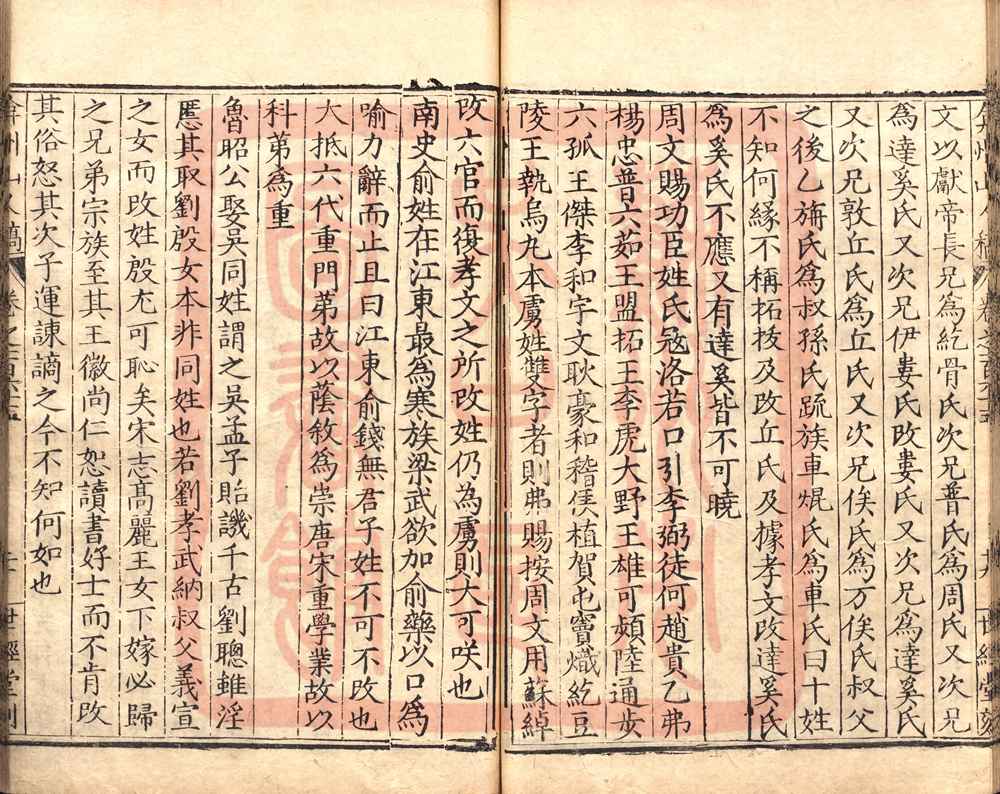 弇州山人稿 卷之一百六十五 世經堂刻
文以獻帝長兄爲紇骨氏次兄普氏爲周氏又次兄
爲達奚氏又次兄伊婁氏改婁氏又次兄爲達奚氏
又次兄敦丘氏爲丘氏又次兄俟氏爲万俟氏叔父
之後乙旃氏爲叔孫氏疏族車焜氏爲車氏曰十姓
不知何緣不稱拓拔及改丘氏及據孝文改達奚氏
爲奚氏不應又有達奚皆不可曉
周文賜功臣姓氏冦洛若口引李弼徒何趙貴乙弗
楊忠普六茹王盟拓王李虎大野王雄可頻陸通步
六孤王傑李和宇文耿豪和稽侯植賀屯竇熾紇豆
陵王執烏丸本虜姓雙字者則弗賜按周文用蘇綽
改六官而復孝文之所改姓仍為虜則大可咲也
南史俞姓在江東最爲寒族梁武欲加俞藥以口爲
喻力辭而止且曰江東俞錢無君子姓不可不改也
大抵六代重門第故以蔭敘爲崇唐宋重學業故以
科第爲重
魯昭公娶吳同姓謂之吳孟子貽譏千古劉聰雖淫
慝其取劉殷女本非同姓也若劉孝武納叔父義宣
之女而改姓殷尤可恥矣宋志高麗王女下嫁必歸
之兄弟宗族至其王徽尚仁恕讀書好士而不肯改
其俗怒其次子運諫謫之今不知何如也
弇州山人稿 卷之一百六十五 七 世經堂刻